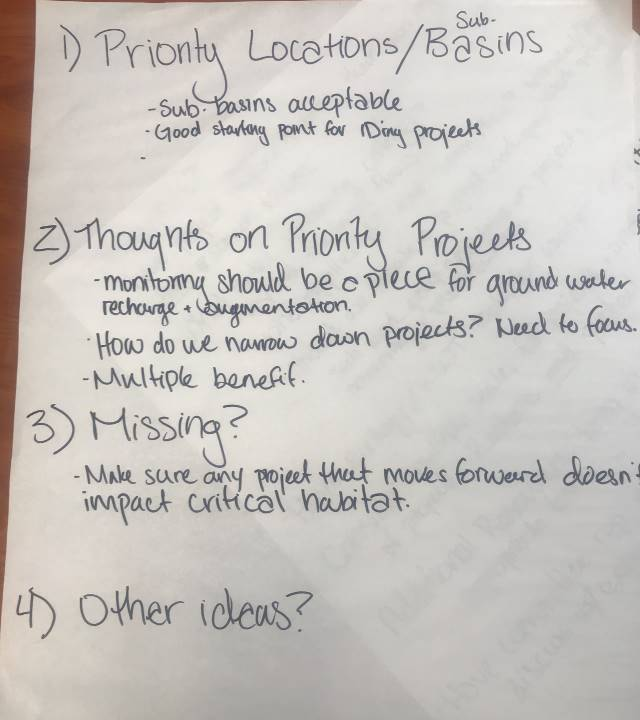 Sub-
1) Priority Locations/Basins
- Sub-basins acceptable
- Good starting point for IDing projects
-
2) Thoughts on Priority Projects
- monitoring should be a piece for ground water
recharge + augmentation.
· How do we narrow down projects? Need to focus.
- Multiple benefit.
3) Missing?
- Make sure any project that moves forward doesn't
impact critical habitat.
4) Other ideas?